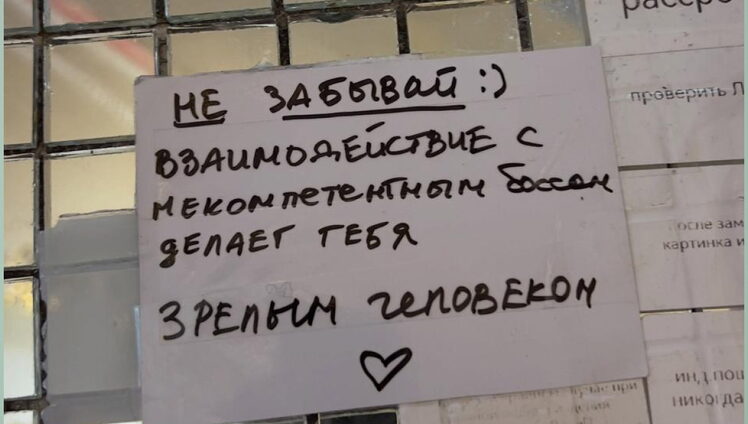 НЕ ЗАБЫВАЙ :)
ВЗАИМОДЕЙСТВИЕ С
НЕКОМПЕТЕНТНЫМ боссом
ДЕЛАЕТ ТЕБЯ
ЗРЕЛЫМ ЧЕЛОВЕКОМ
♡
проверить Л
после зам
картинка и
никогда